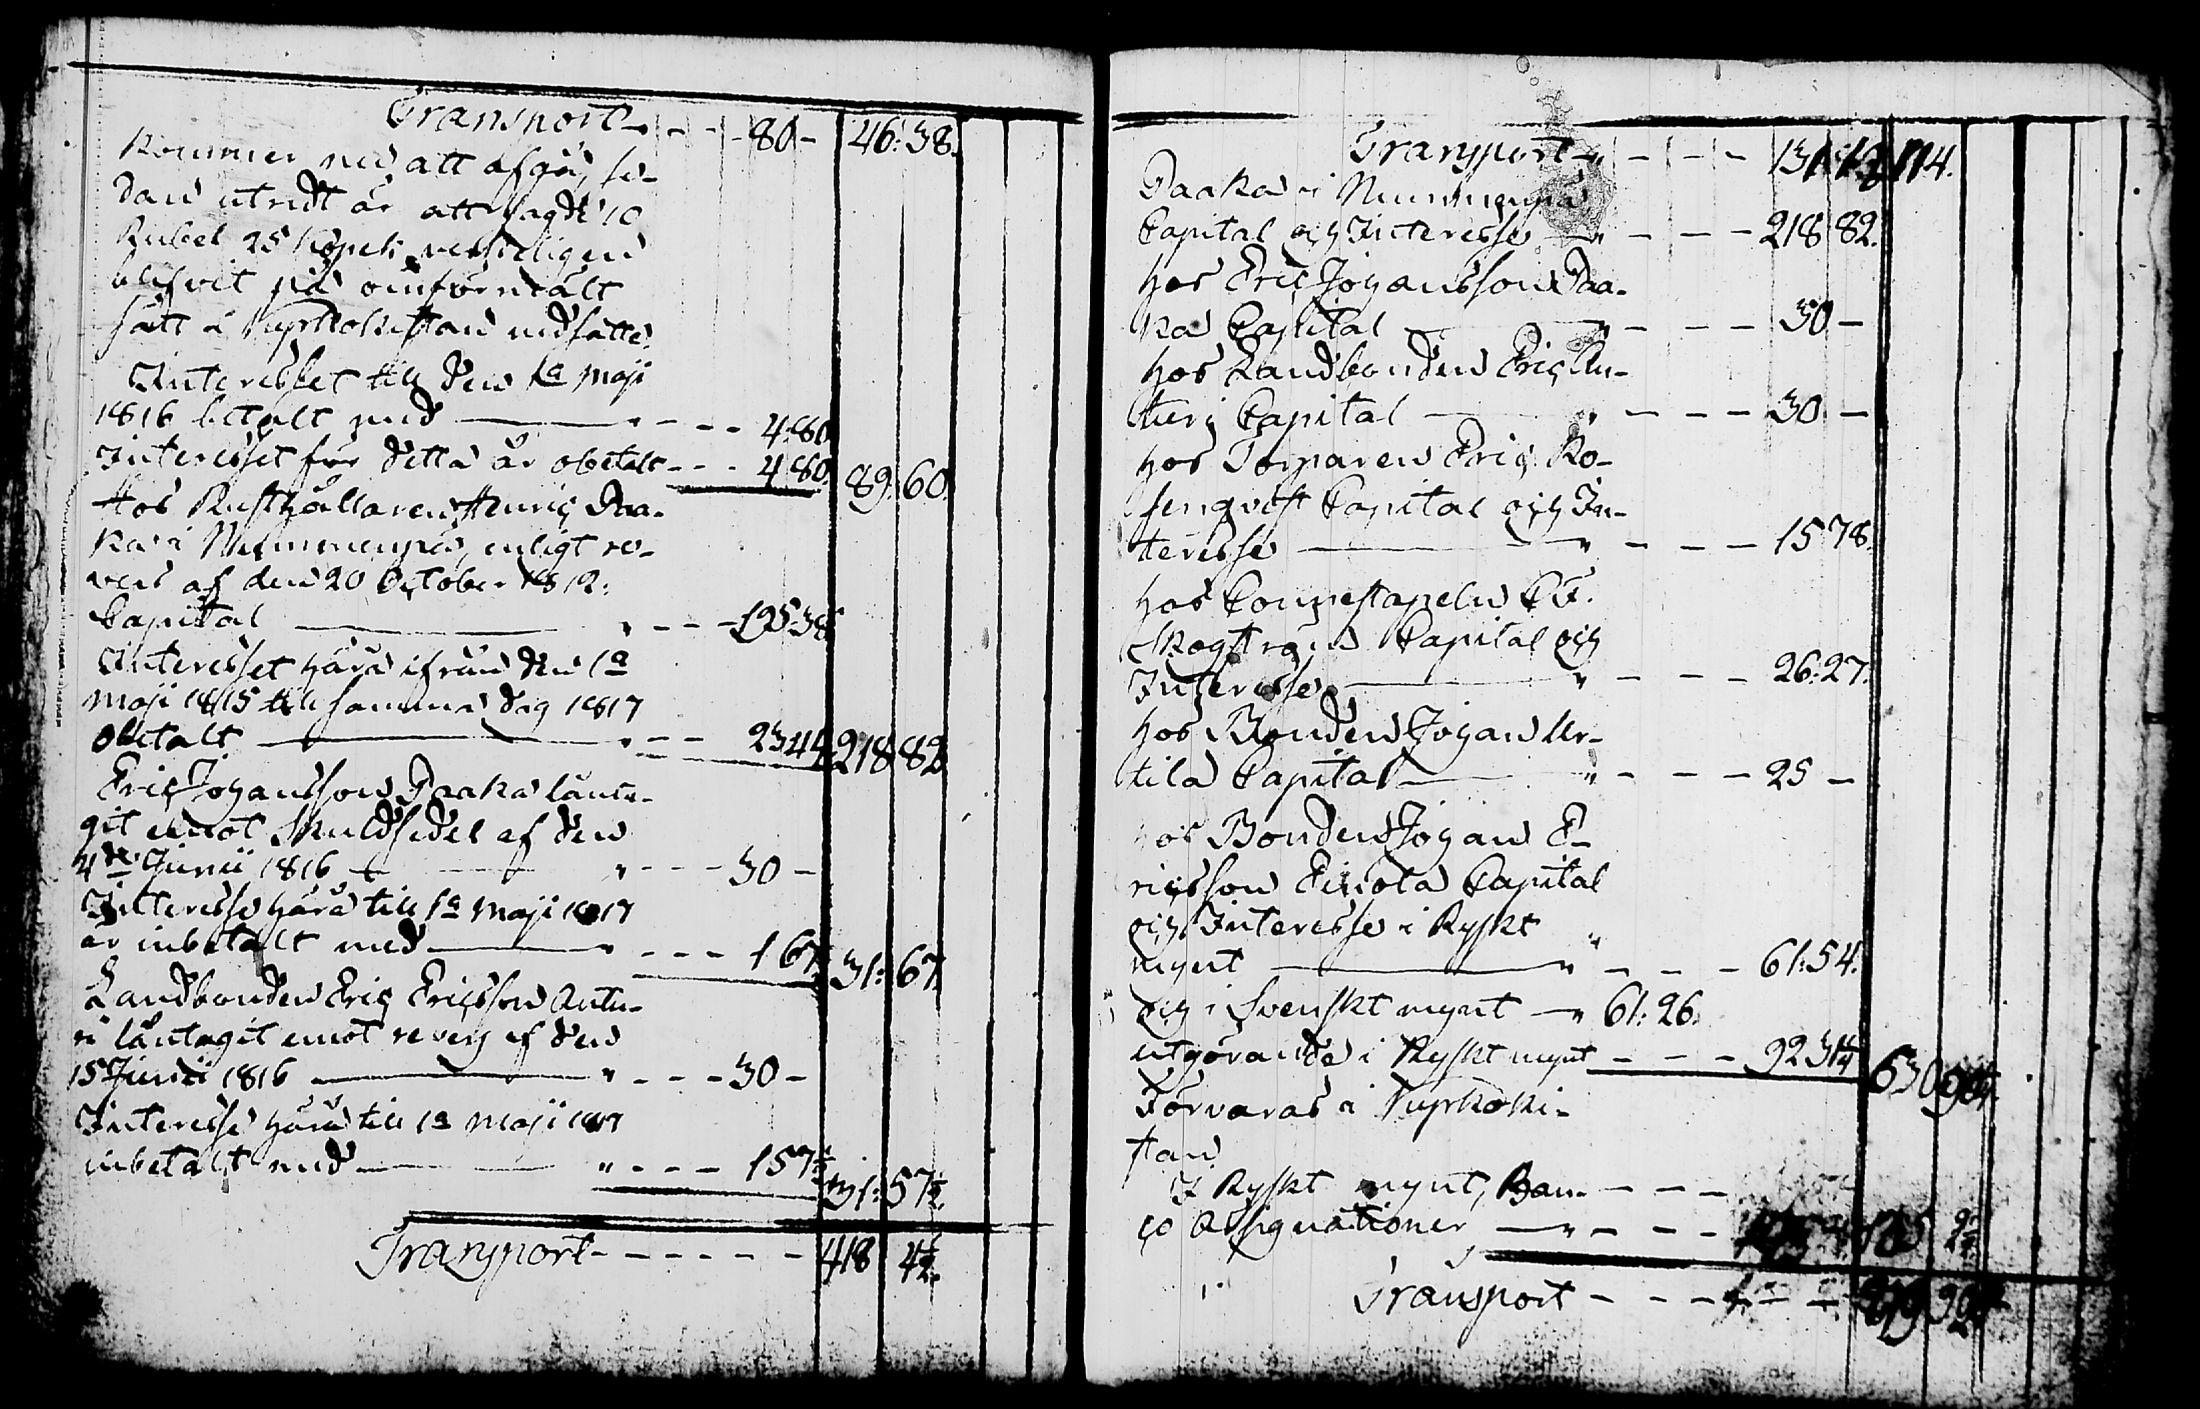 Transport - - - 80 - 46: 38.
kommer med att afgå, se-
dan utredt är att sagde 10
Rubel 25 Kopek verkeligen
blifvit på omförmält
sätt i Kyrkokistan nedsatte.
Interesset till den 1a Maji
1816 betalt med - - - 4:80
Interesset för detta år obetalt - - - 4:80. 89: 60.
Hos Rusthållaren Henric Daa-
ka i Nummenpää, enligt re-
vers af den 20 October 1812:
Capital - - - 195:38
Interesset härå ifrån den 1a
Maji 1815 till samma dag 1817
obetalt - - - 23 44 218 82
Eric Johansson Daaka länta-
git emot Skuldsedel af den
4de Junii 1816 - - - 30 -
Interesse härå till 1a Maji 1817
är inbetalt med - - - 1 67 31: 67
Landbonden Eric Ericsson Antu-
ri låntagit emot revers af den
15 Junii 1816 - - - 30 -
Interesse härå till 1a Maji 1817
inbetalt med - - - 1 57½ 31: 57½
Transport - - - 418 4½.
Transport - - -
Daaka i Nummenpää
Capital och Interesse - - - 218 82.
hos Eric Johansson Daa-
ka Capital - - - 30 -
hos Landbonden Eric An-
turi Capital - - - 30 -
hos Torparen Eric Ro-
senqvist Capital och In-
teresse - - - 15 78.
hos Compestapeln
Skogström Capital och
Interesse - - - 26: 27.
hos Bonden Johan Ur-
tila Capital - - - 25 -
hos Bonden Johan E-
ricsson Eirola Capital
och Interesse i Ryskt
mynt - - - 61: 54.
och i Svenskt mynt - 61: 26.
utgörande i Ryskt mynt - - - 92 31¼ 630
Förvaras i Kyrkoki-
stan
I Ryskt mynt, Ban- - - -
co Assignationer - - -
Transport - - -